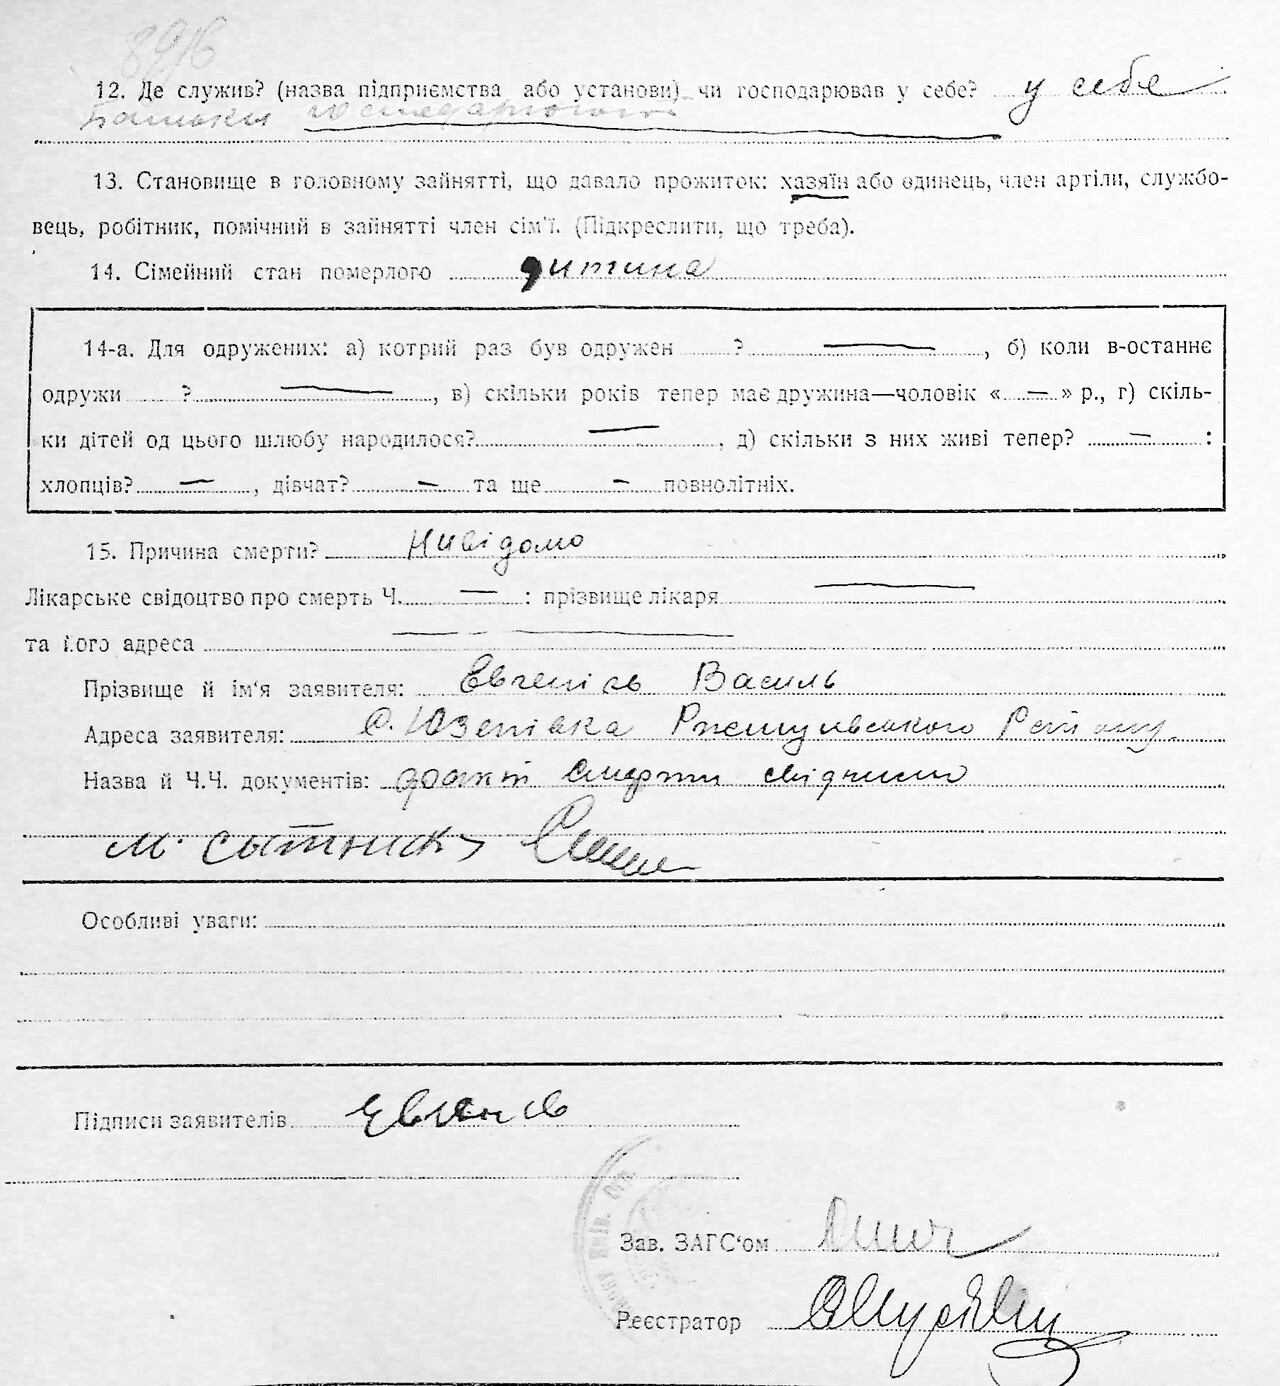 12. Де служив? (назва підприємства або установи) чи господарював у себе? у себе
Батьки господарюють
13. Становище в головному зайнятті, що давало прожиток: хазяїн або одинець, член артіли, службо-
вець, робітник, помічний в зайнятті член сім'ї. (Підкреслити, що треба).
14. Сімейний стан померлого дитина
14-а. Для одружених: а) котрий раз був одружен ? —, б) коли в-останнє
одружи ? —, в) скільки років тепер має дружина—чоловік «—» р., г) скіль-
ки дітей од цього шлюбу народилося? —, д) скільки з них живі тепер? — :
хлопців? —, дівчат? — та ще — повнолітніх.
15. Причина смерти? Нивідомо
Лікарське свідоцтво про смерть Ч. — : прізвище лікаря —
та його адреса —
Прізвище й ім'я заявителя: Василь
Адреса заявителя: с. Юзепівка Району
Назва й Ч.Ч. документів: факт смерти свідчили
м. Сытник
Особливі уваги:
Підписи заявителів
Зав. ЗАГС'ом
Реєстратор